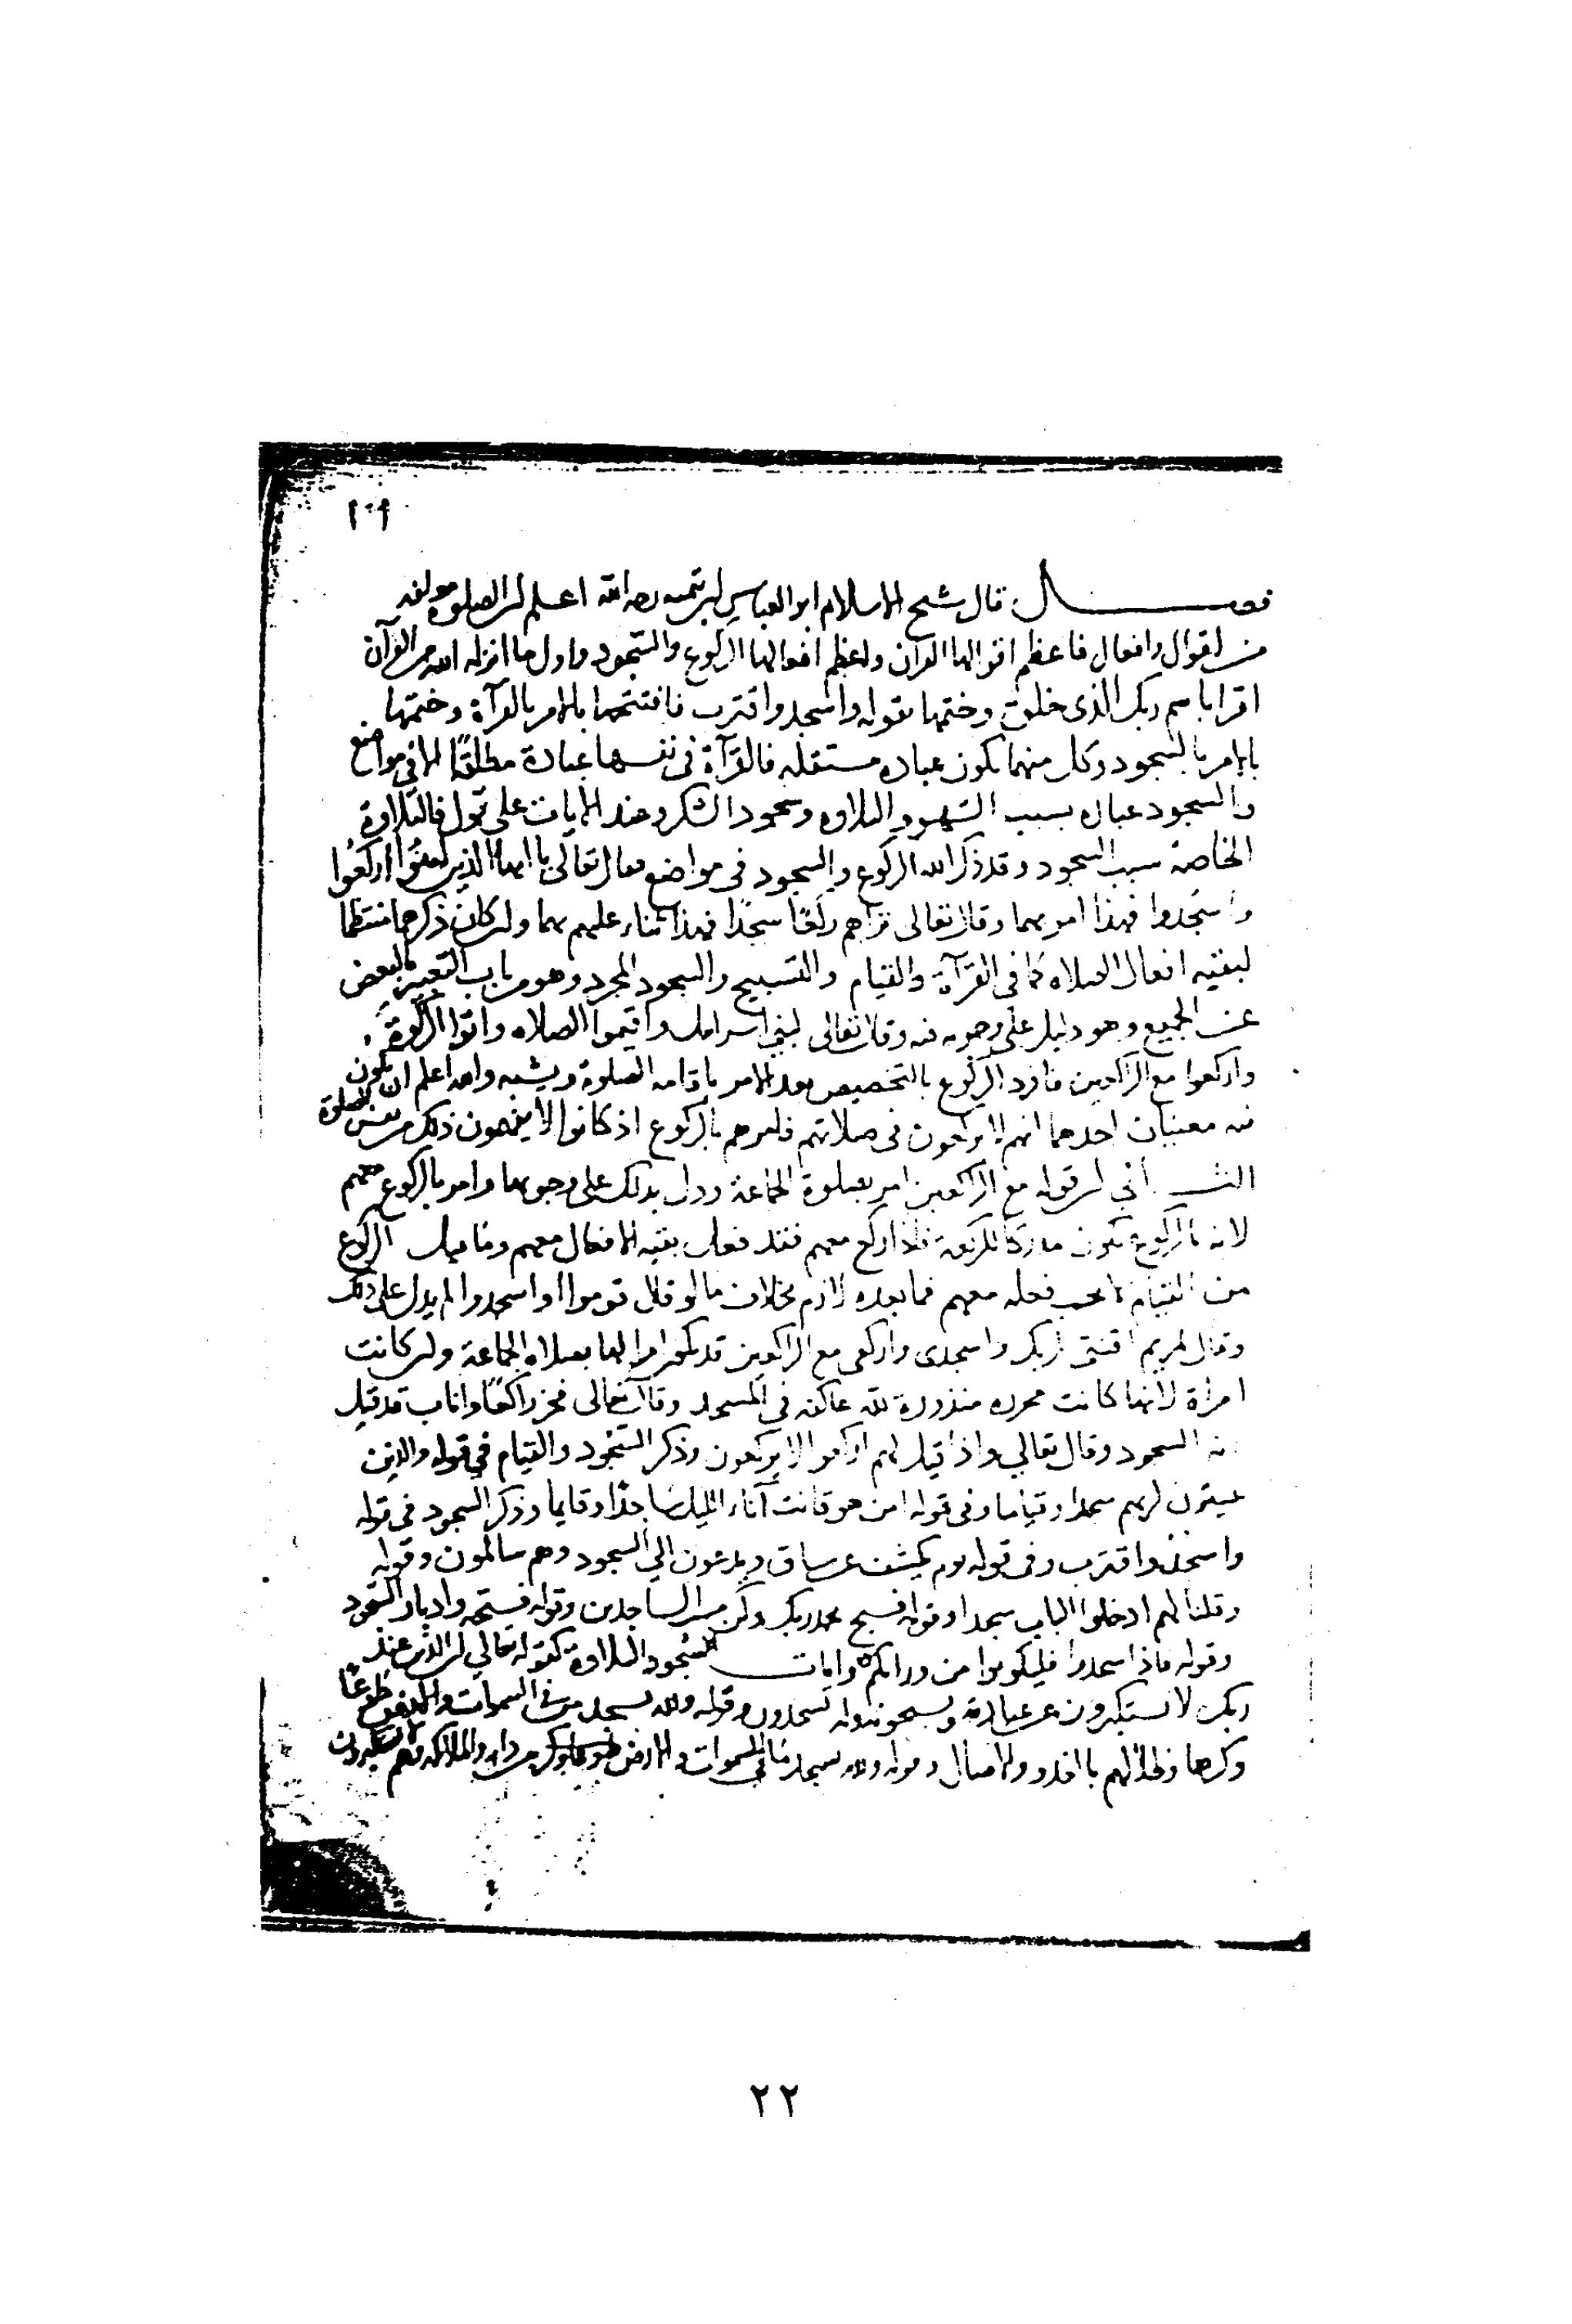 ١٠٩
فصـــــــــل قال شيخ الاسلام ابو العباس ابن تيميه رحمه الله اعلم ان الصلوة مؤلفه
من اقوال وافعال فاعظم اقوالها القرآن واعظم افعالها الركوع والسجود واول ما انزله الله من القرآن
اقرا باسم ربك الذى خلق وختمها بقوله واسجد واقترب فافتتحها بالامر بالقرآة وختمها
بالامر بالسجود وكل منهما يكون عباده مستقله فالقرآة فى نفسها عبادة مطلقًا الا فى مواضع
والسجود عباده بسبب السهو والتلاوه وسجود الشكر وعند الايات على قول فالتلاوة
الخاصة سبب السجود وقد ذكر الله الركوع والسجود فى مواضع فقال تعالى يا ايها الذين امنوا اركعوا
واسجدوا فهذا امر بهما وقال تعالى تراهم ركعًا سجدًا فهذا ثناء عليهم بهما وان كان ذكرهما منتظما
لبقيه افعال الصلاه كما فى القرآة والقيام والتسبيح والسجود المجرد وهو من باب التعبير بالبعض
عن الجميع وهو دليل على وجوبه فيه وقال تعالى لبنى اسرايل واقيموا الصلاه واتوا الزكوة
واركعوا مع الراكعين فافرد الركوع بالتخصيص بعد الامر باقامه الصلوة ويشبه والله اعلم ان يكون
فيه معنيان احدهما انهم لا يركعون فى صلاتهم فامرهم بالركوع اذ كانوا لا يفهمون ذلك من نفس الصلوة
الثـــانى ان قوله مع الراكعين امر بصلوة الجماعة ودل بذلك على وجوبها وامر بالركوع معهم
لانه بالركوع يكون مدركا للركعة فاذا ركع معهم فقد فعل بقيه الافعال معهم وما قبل الركوع
من القيام لا يجب فعله معهم فما بعده لازم بخلاف ما لو قال قوموا او اسجدوا لم يدل على ذلك
وقال لمريم اقنتى لربك واسجدى واركعى مع الراكعين قد يكون امرا لها بصلاه الجماعة وان كانت
امراة لانها كانت محرره منذورة لله عاكفه فى المسجد وقال تعالى فخر راكعًا واناب قد قيل
انه السجود وقال تعالى واذا قيل لهم اركعوا لا يركعون وذكر السجود والقيام فى قوله والذين
يبيتون لربهم سجدا وقياما وفى قوله امن هو قانت آناء الليل ساجدًا وقايما وذكر السجود فى قوله
واسجد واقترب وفى قوله يوم يكشف عن ساق ويدعون الى السجود وهم سالمون وقوله
وقلنا لهم ادخلوا الباب سجدا وقوله فسبح بحمد ربك وكن من الساجدين وقوله فسبحه وادبار السجود
وقوله فاذا سجدوا فليكونوا من ورائكم وايات السجود التلاوة كقوله تعالى ان الذين عند
ربك لا يستكبرون عن عبادته ويسبحونه وله يسجدون وقوله ولله يسجد من فى السموات والارض طوعًا
وكرها وظلالهم بالغدو والاصال وقوله ولله يسجد ما فى السموات وما فى الارض من دابه والملائكه وهم لا يستكبرون
٢٢